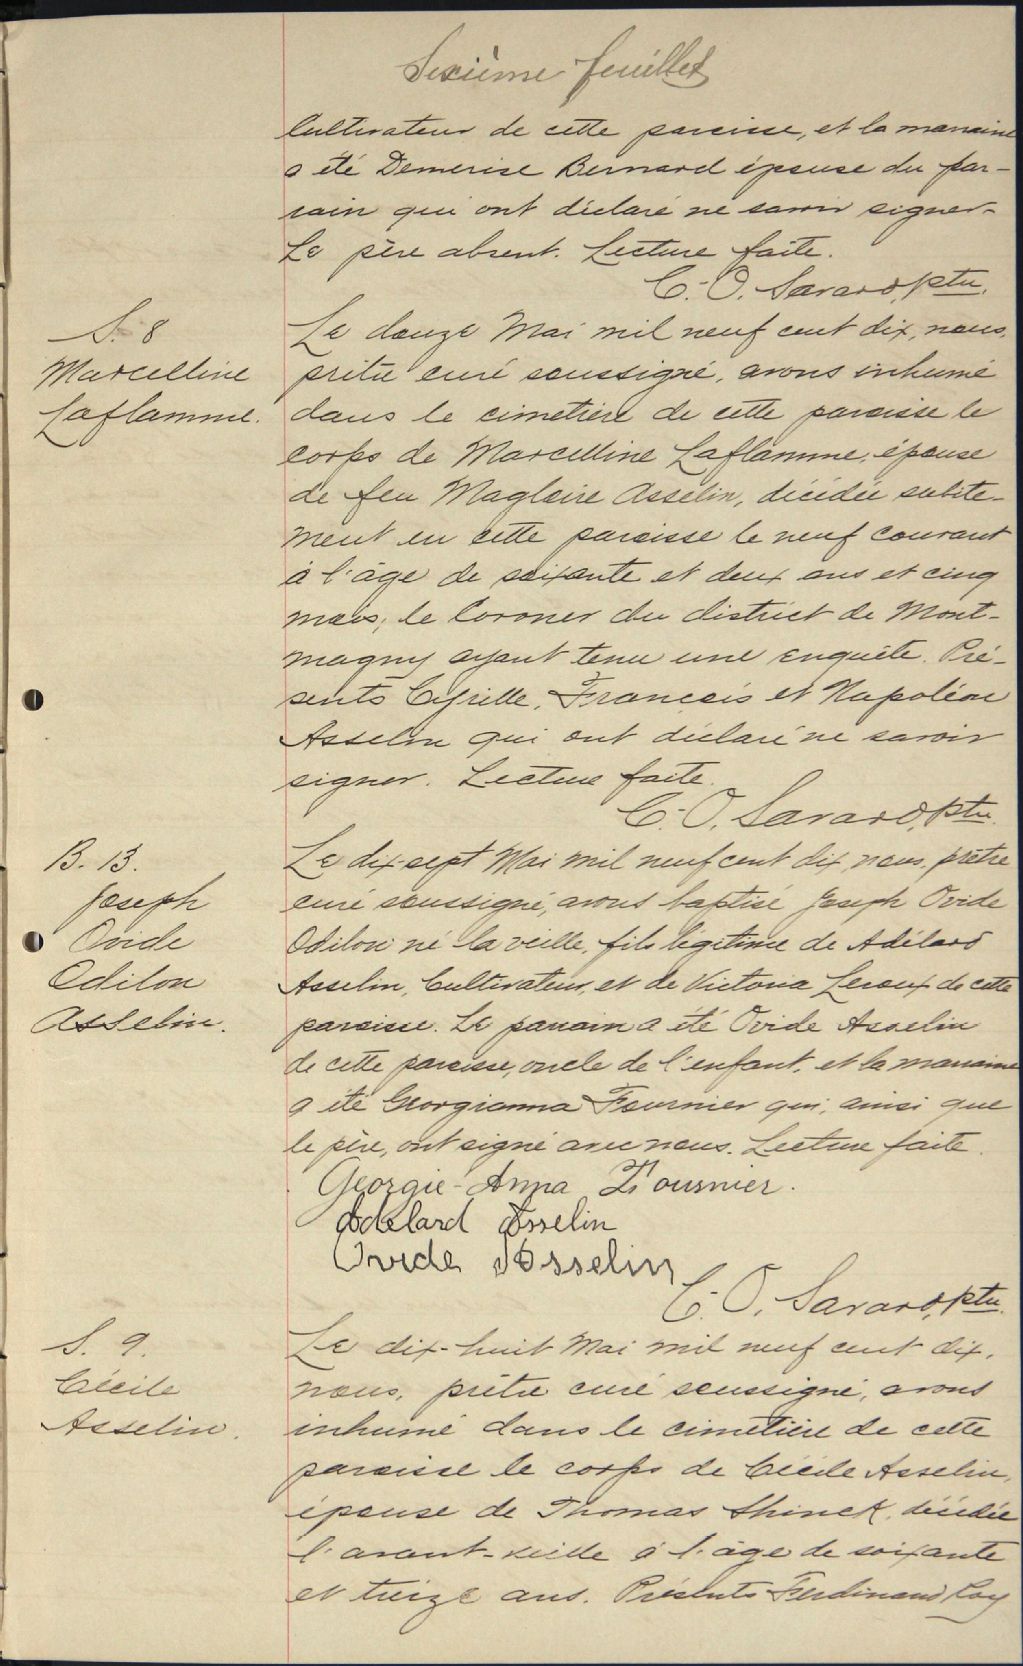 Sixième feuillet
Cultivateur de cette paroisse, et la marraine
a été Demerise Bernard épouse du par-
rain qui ont déclaré ne savoir signer.
Le père absent. Lecture faite.
C. O. Savard, ptre.
S. 8
Marcelline
Laflamme.
Le douze Mai mil neuf cent dix, nous,
prêtre curé soussigné, avons inhumé
dans le cimetière de cette paroisse le
corps de Marcelline Laflamme, épouse
de feu Magloire Asselin, décédée subite-
ment en cette paroisse le neuf courant
à l'âge de soixante et deux ans et cinq
mois; le Coroner du district de Mont-
magny ayant tenu une enquête. Pré-
sents Cyrille, François et Napoléon
Asselin qui ont déclaré ne savoir
signer. Lecture faite.
C. O. Savard, ptre.
B. 13.
Joseph
Ovide
Odilon
Asselin.
Le dix-sept Mai mil neuf cent dix, nous, prêtre
curé soussigné, avons baptisé Joseph Ovide
Odilon né la veille, fils légitime de Adélard
Asselin, Cultivateur, et de Victoria Leroux de cette
paroisse. Le parrain a été Ovide Asselin
de cette paroisse, oncle de l'enfant, et la marraine
a été Georgianna Fournier qui, ainsi que
le père, ont signé avec nous. Lecture faite.
Georgie-Anna Fournier.
Adelard Asselin
Ovide Asselin
C. O. Savard, ptre.
S. 9.
Cécile
Asselin.
Le dix-huit Mai mil neuf cent dix,
nous, prêtre curé soussigné, avons
inhumé dans le cimetière de cette
paroisse le corps de Cécile Asselin,
épouse de Thomas Shinck, décédée
l'avant-veille à l'âge de soixante
et treize ans. Présents Ferdinand Roy